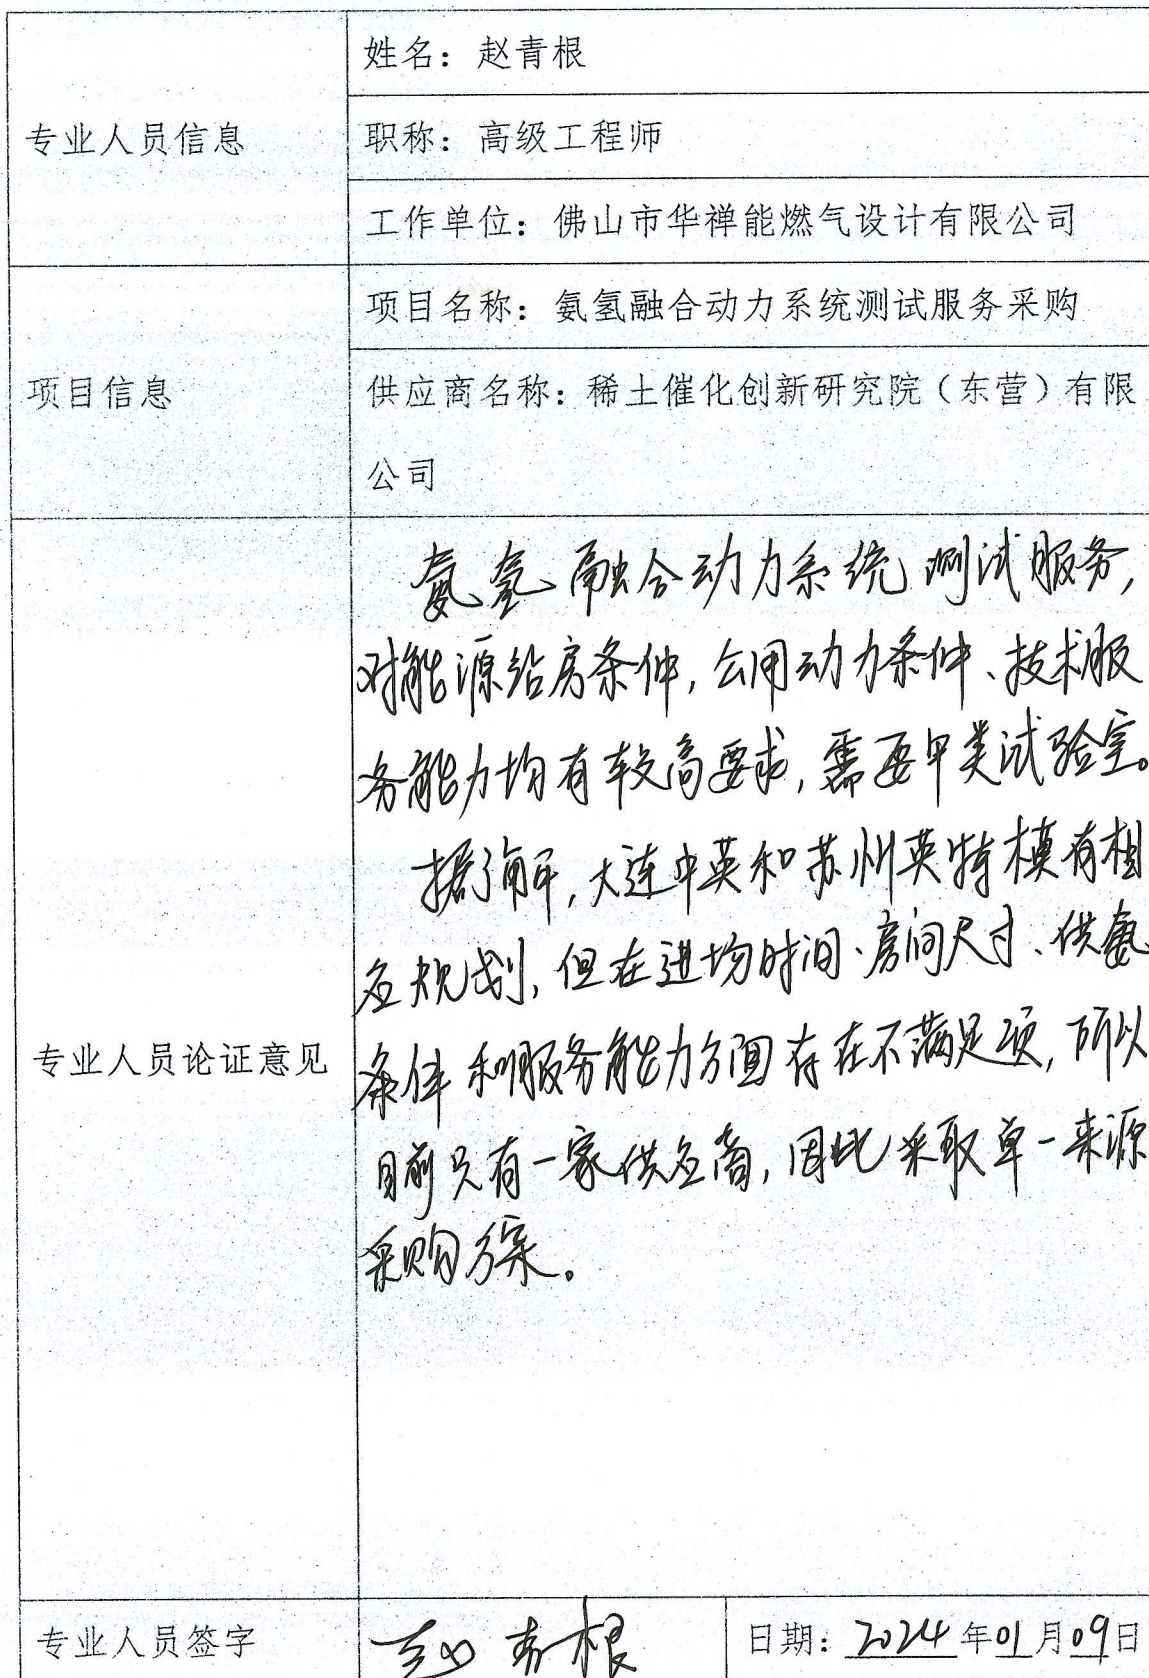 姓名：赵青根
专业人员信息
职称：高级工程师
工作单位：佛山市华禅能燃气设计有限公司
项目名称：氨氢融合动力系统测试服务采购
项目信息
供应商名称：稀土催化创新研究院（东营）有限
公司
氨氢融合动力系统测试服务，
对能源给房条件，公用动力条件、技术服
务能力均有较高要求，需要甲类试验室。
据了解，大连中英和苏州英特模有相
应规划，但在进场时间、房间尺寸、供氨
专业人员论证意见
条件和服务能力方面存在不满足项，所以
目前只有一家供应商，因此采取单一来源
采购方案。
专业人员签字
赵青根
日期：2024年01月09日